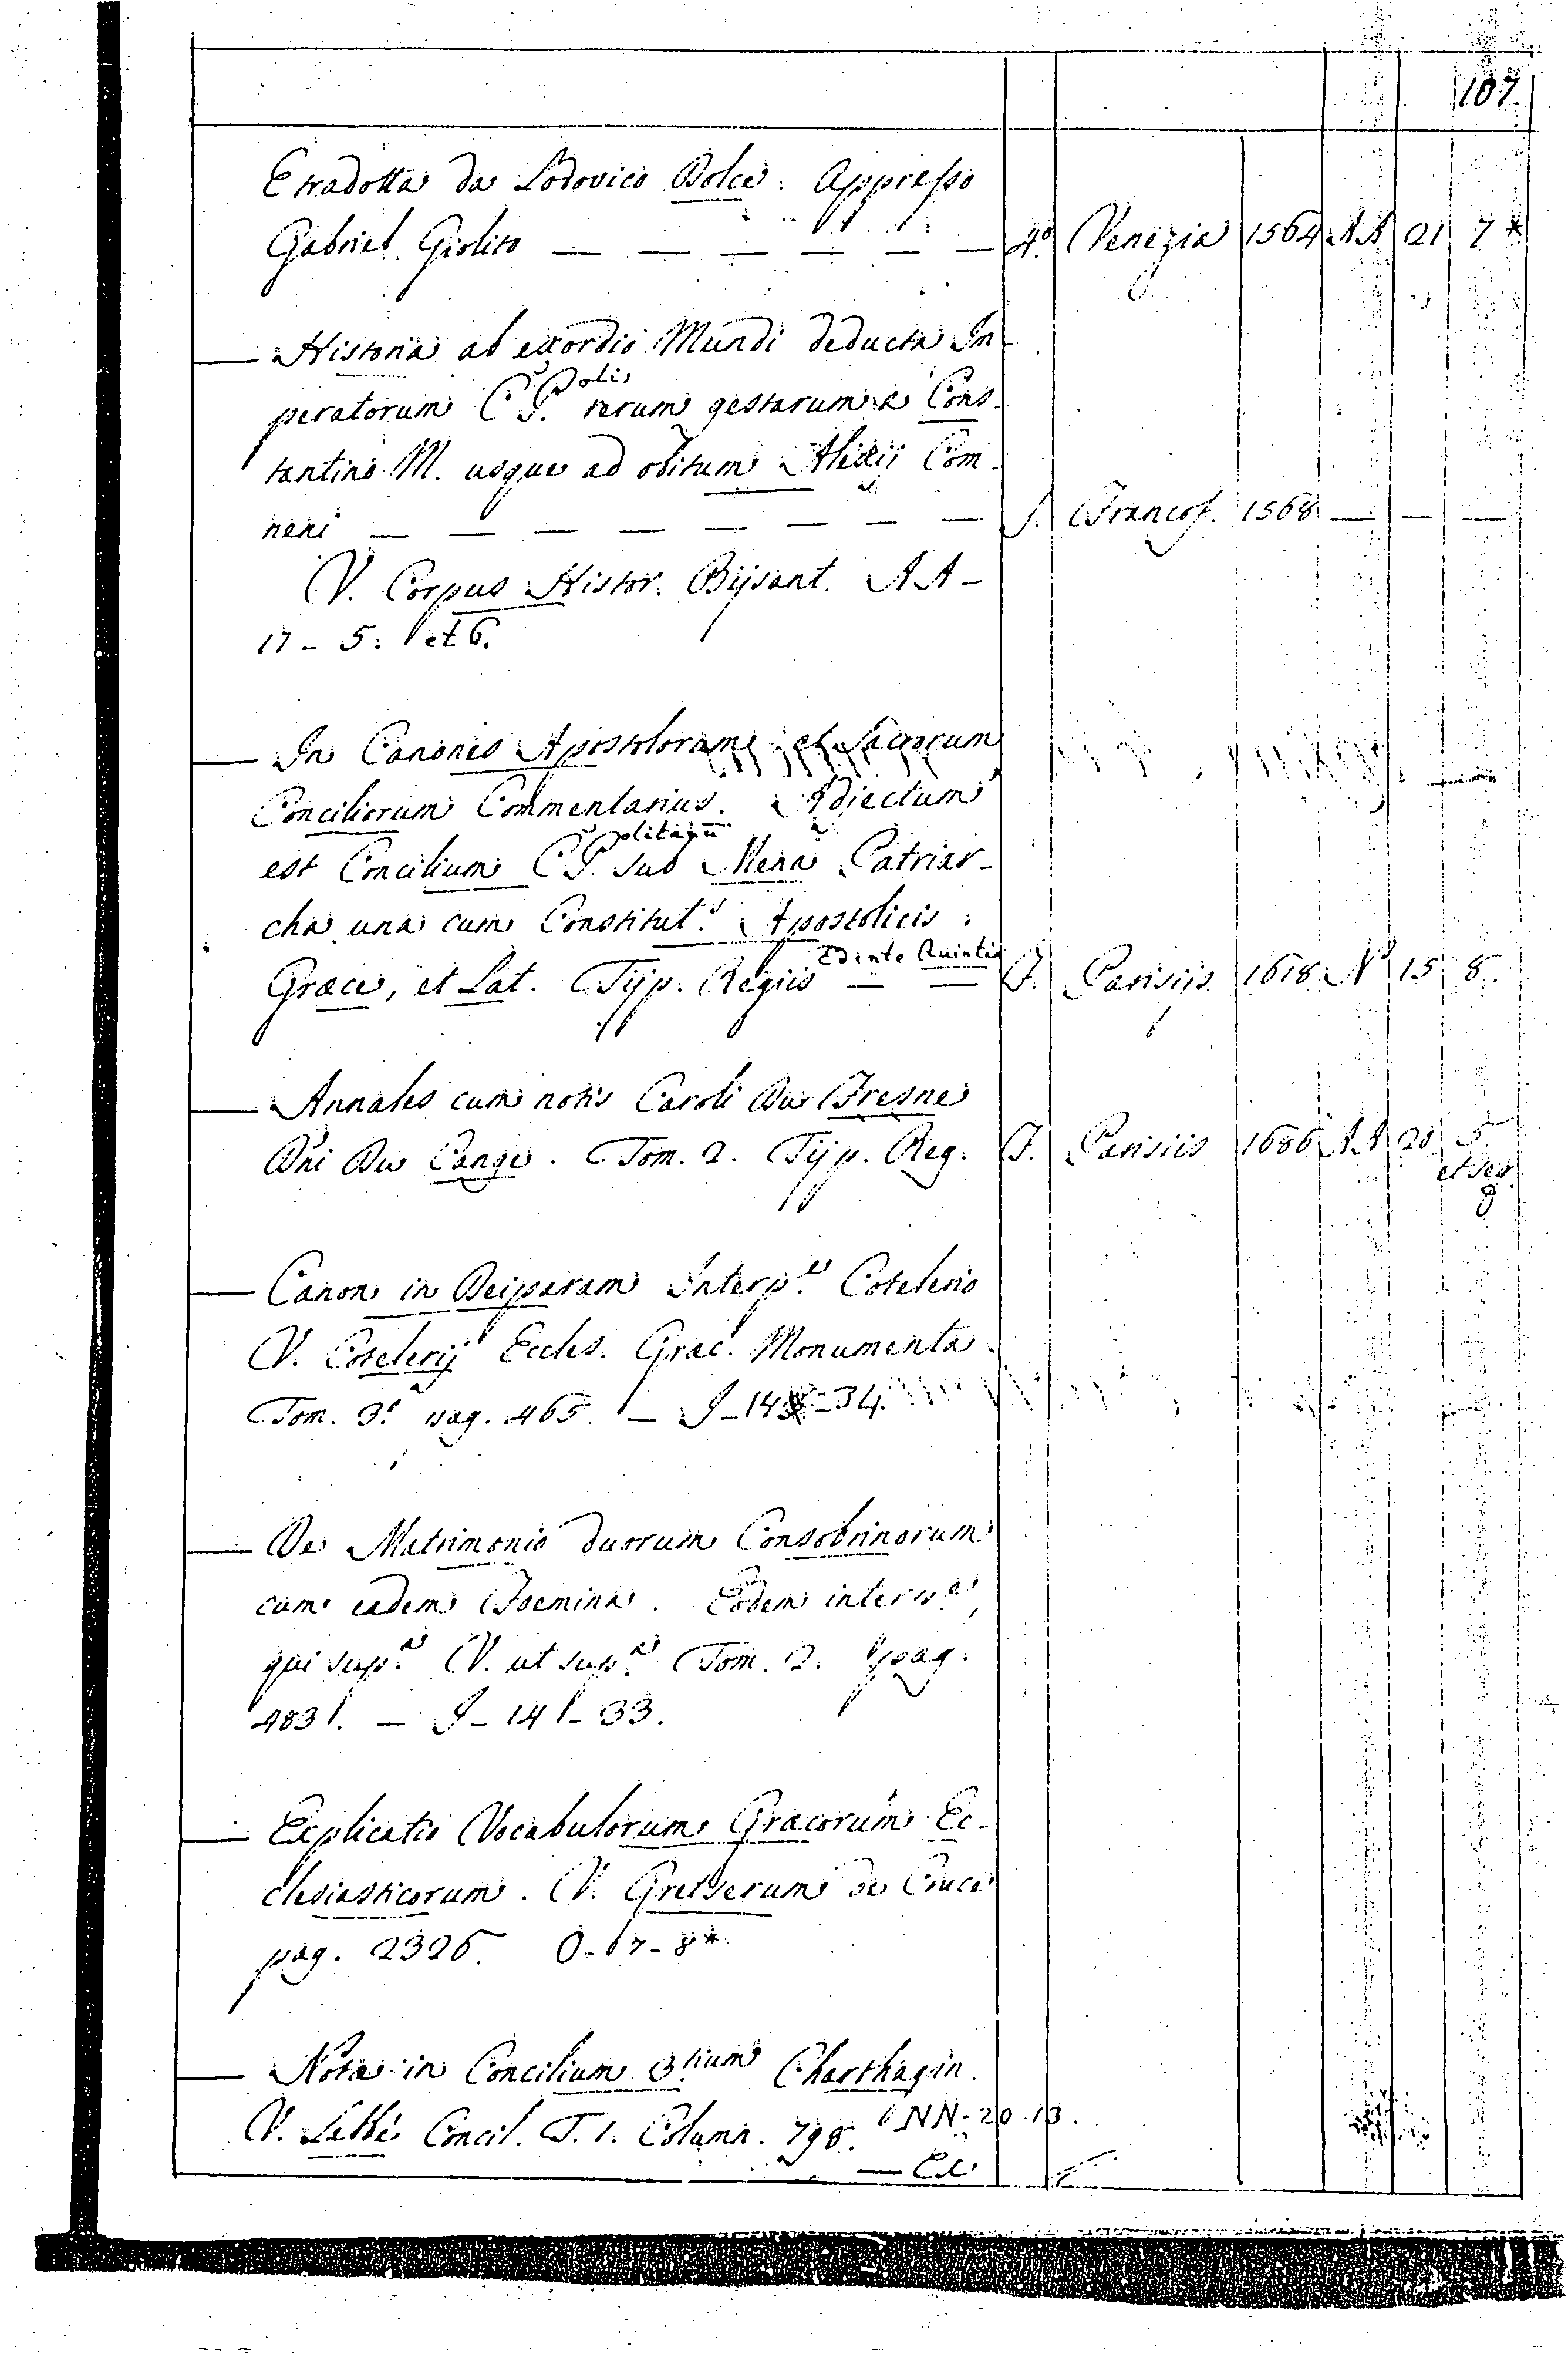 107
E tradotta da Lodovico Dolce. Appresso
Gabriel Giolito — — — — — — 4.º Venezia 1564 AA 21 7*
— Historia ab exordio Mundi deducta Im
peratorum C.P.olis rerum gestarum a Cons-
tantino M. usque ad obitum Alexii Com-
neni — — — — — — — — f. Francof. 1568 — — —
V. Corpus Histor. Bijsant. AA-
17-5. et 6.
— In Canones Apostolorum et Sacrorum
Conciliorum Commentarius. Adiectum
est Concilium C.P.olitanū sub Mena Patriar-
cha una cum Constitut.s Apostolicis.
Edente Quintin
Græce, et Lat. Tijp. Regiis — — F. Parisijs 1618 N 15 8.
— Annales cum notis Caroli Du Fresne
Dñi Du Cange. Tom. 2. Tijp. Reg. F. Parisiis 1686 AA 20 5
et seq.
— Canon in Deiparam Interp.e Cotelerio
V. Cotelerij Eccles. Græc. Monumenta
Tom. 3.º pag. 465. — J-14-34.
— De Matrimonio duorum Consobrinorum
cum eadem Foemina. Eodem interp.e,
qui sup.a V. ut sup.a Tom. 2. pag.
483. — J-14-33.
— Explicatio Vocabulorum Græcorum Ec-
clesiasticorum. V. Gretserum de Cruce
pag. 2326. O-7-8*
— Notæ in Concilium 3.tium Charthagin.
V. Labbé Concil. T. 1. Column. 798. NN-20.13.